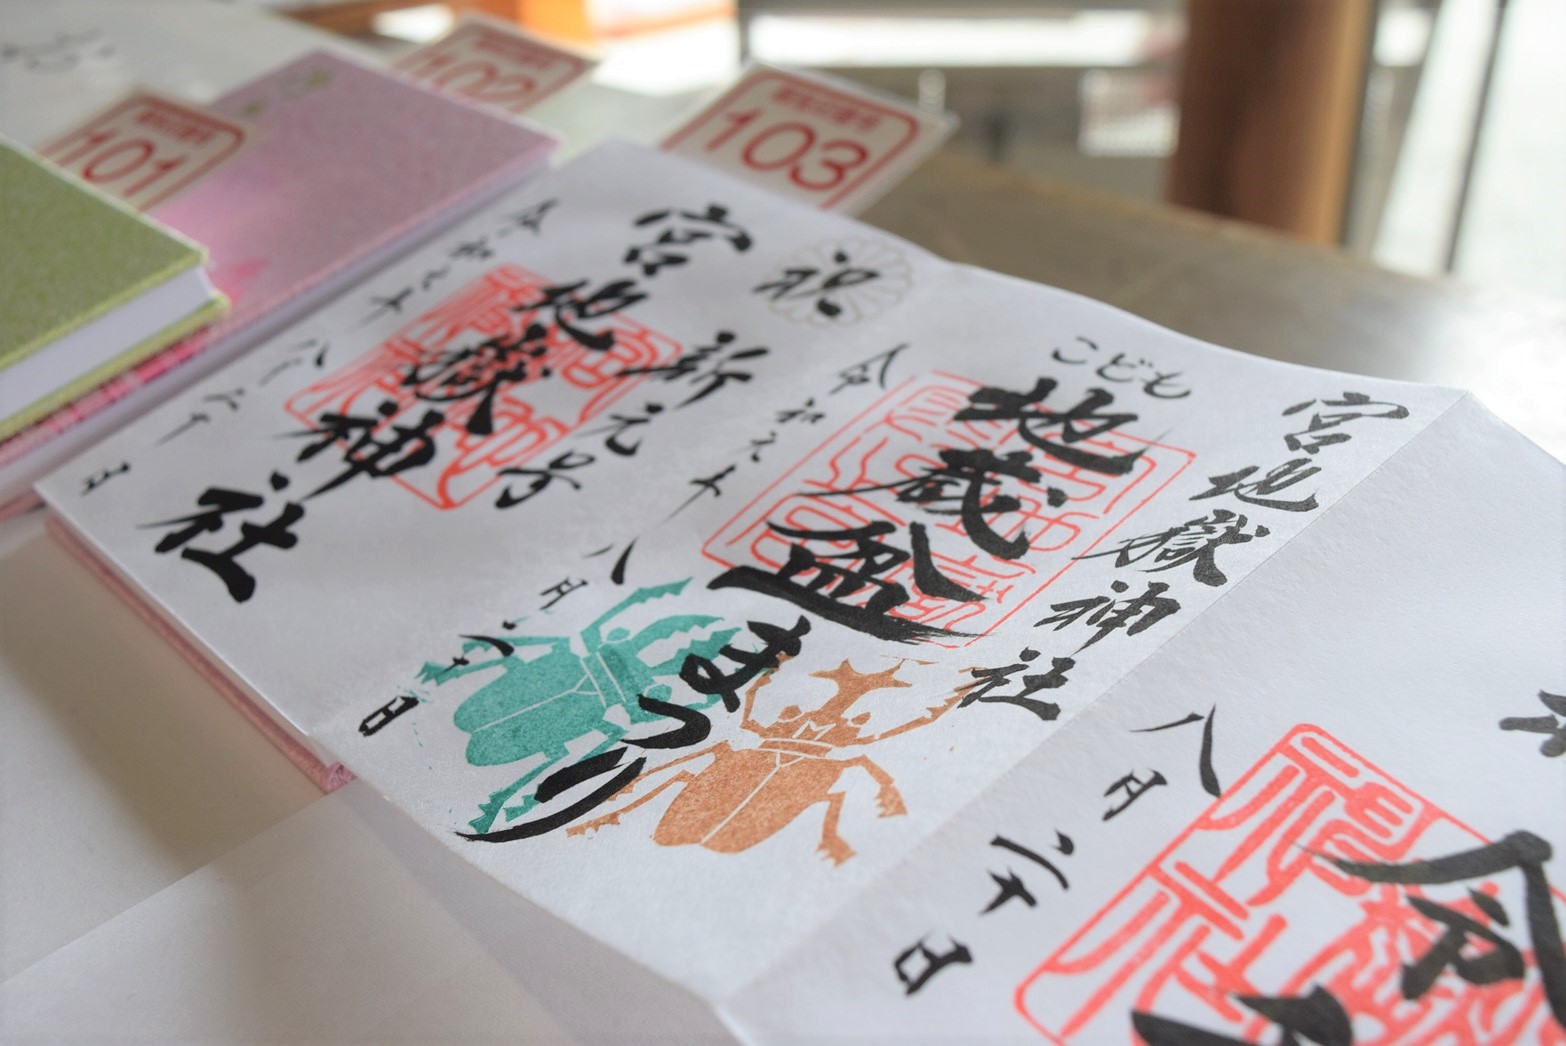 101
102
103
令和
八月二十日
宮地嶽神社
こども
地蔵盆まつり
令和元年
八月二十日
祝
新元号
宮地嶽神社
令和元年
日